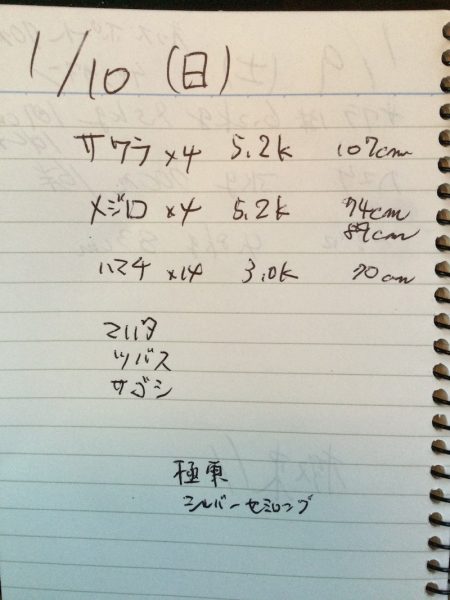 1/10 (日)
サワラ ×4 5.2k 107cm
メジロ ×4 5.2k 74cm
89cm
ハマチ ×14 3.0k 70cm
マハタ
ツバス
サゴシ
極東
シルバーセミロング